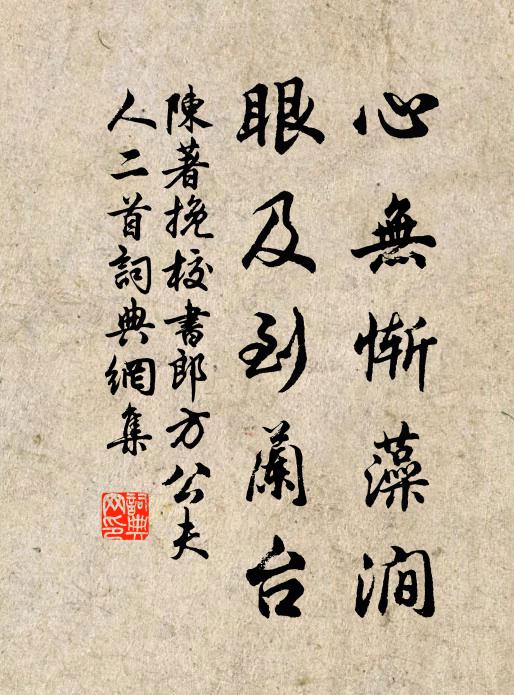 心無慚藻澗
眼及到蘭台
陳著挽校書郎方公夫
人二首詞典網集
詞典网印